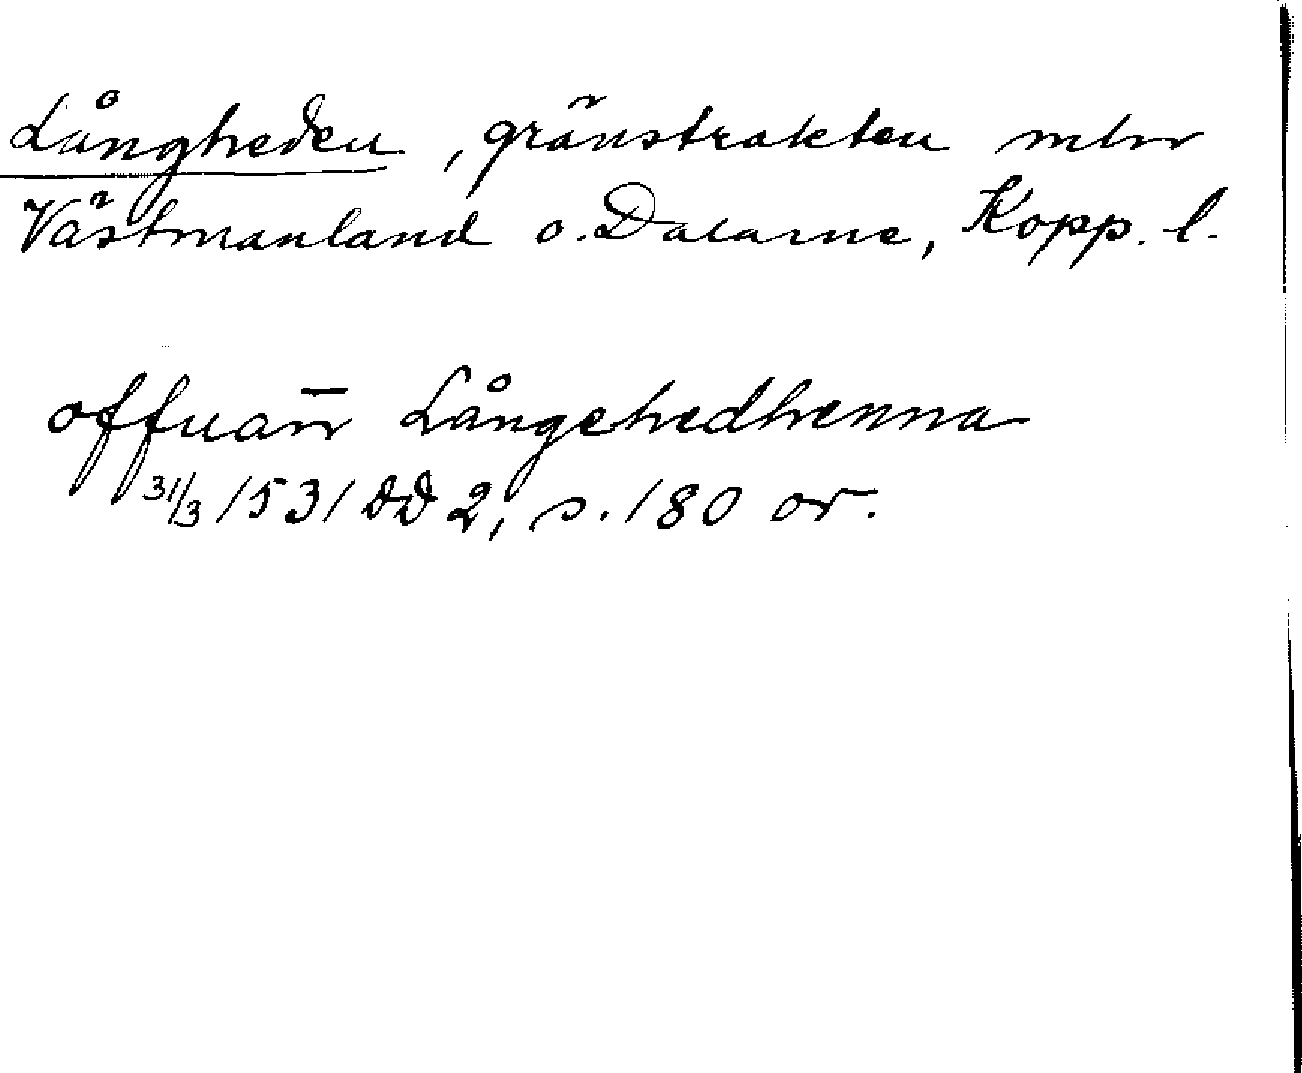 Långheden, gränstrakten mlr
Västmanland o. Dalarne, Kopp. l.
offuan̄ Långehedhenna
31/3 1531 DD 2, s. 180 or.